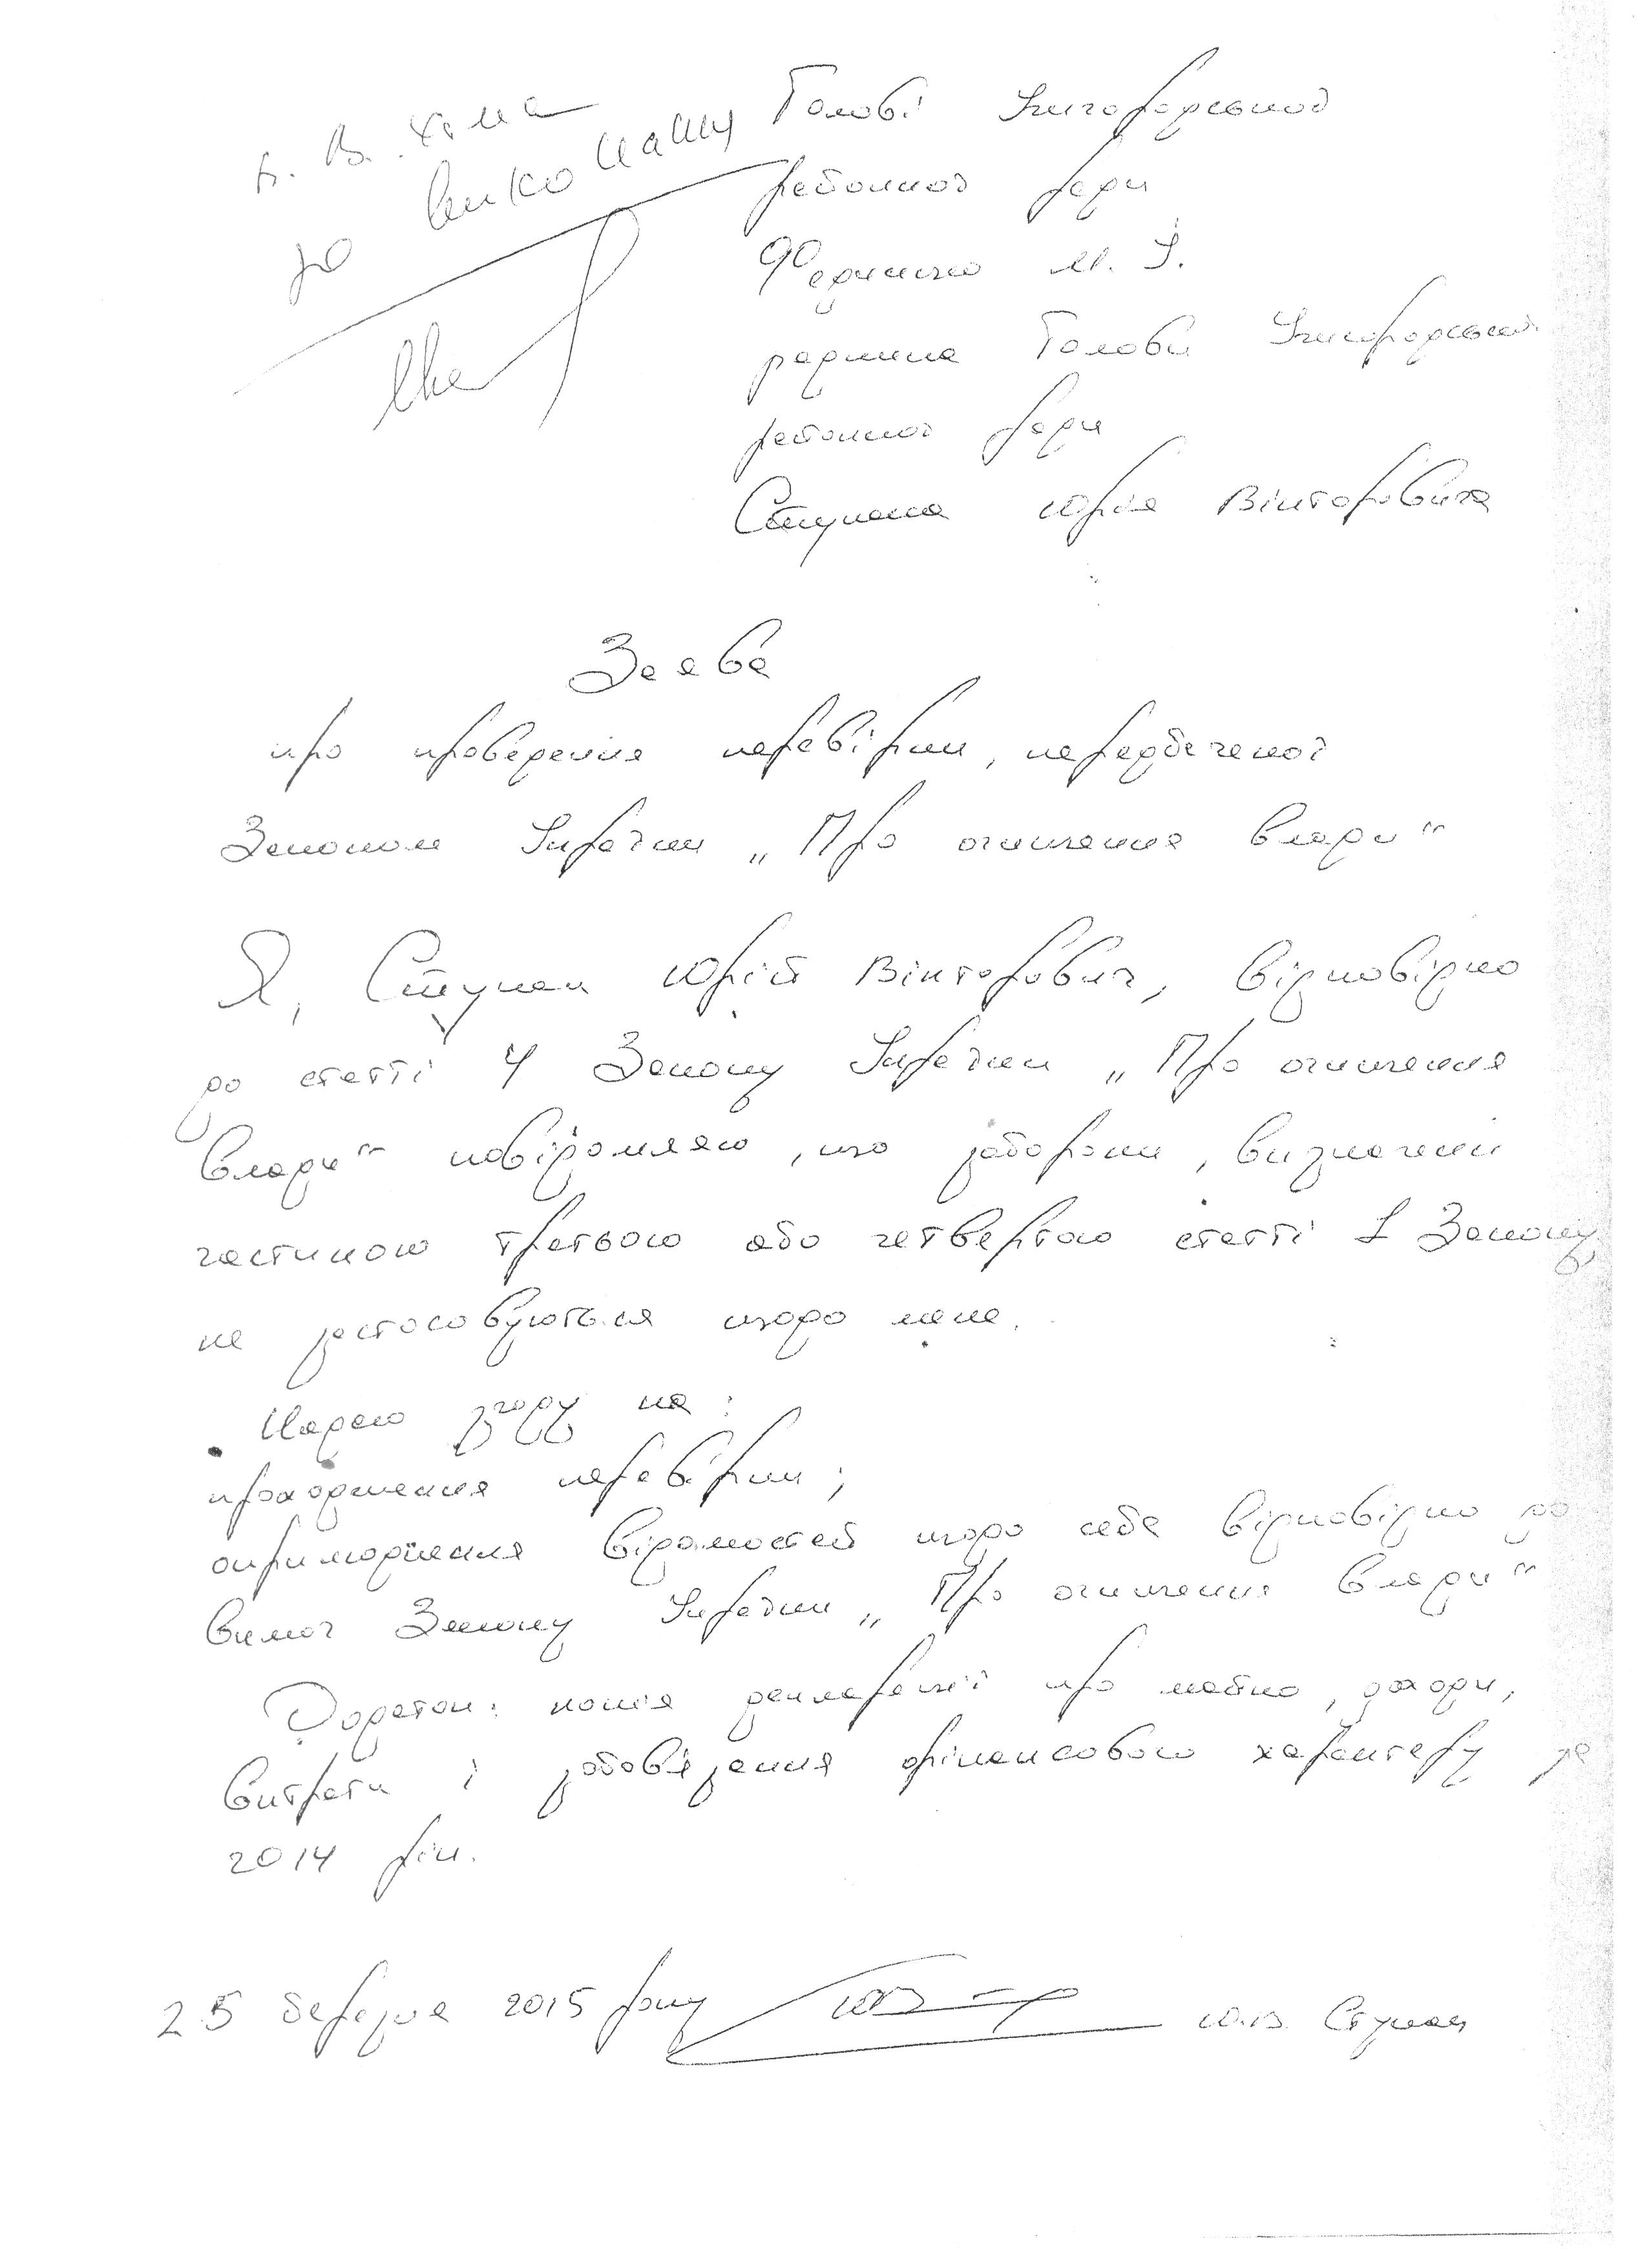 В. Хома
до виконання
Голові Ужгородської
районної ради
Фединцю М. І.
радника Голови Ужгородської
районної ради
Ступена Юрія Вікторовича
Заява
про проведення перевірки, передбаченої
Законом України „Про очищення влади"
Я, Ступен Юрій Вікторович, відповідно
до статті 4 Закону України „Про очищення
влади" повідомляю, що заборони, визначені
частиною третьою або четвертою статті 1 Закону
не застосовуються щодо мене.
Надаю згоду на:
проходження перевірки;
оприлюднення відомостей щодо себе відповідно до
вимог Закону України „Про очищення влади"
Додаток: копія декларації про майно, доходи,
витрати і зобов'язання фінансового характеру за
2014 рік.
25 березня 2015 року Ю.В. Ступен